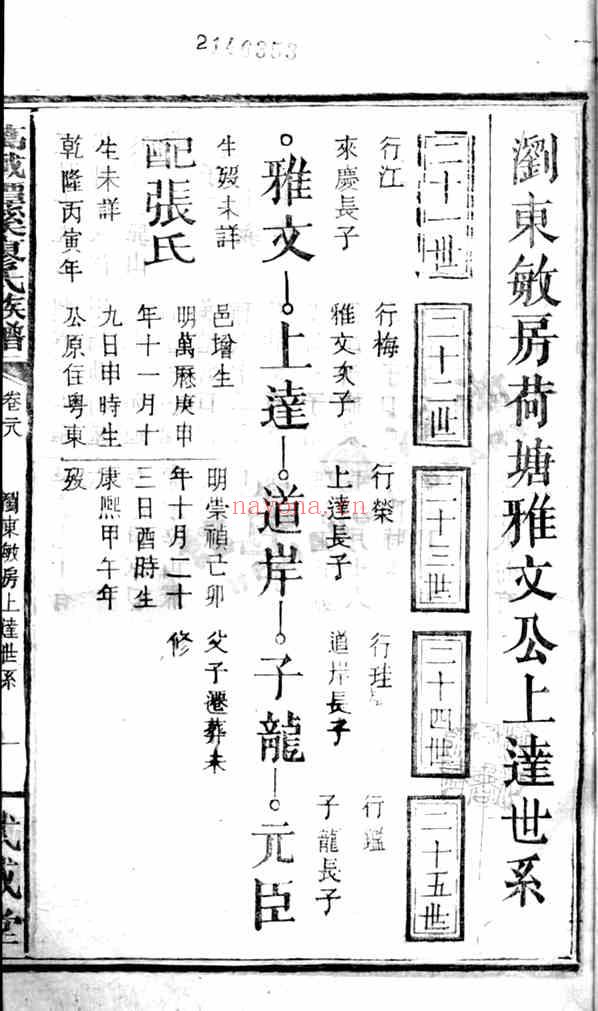 2140353
瀏東敏房荷塘雅文公上達世系
二十一世
二十二世
二十三世
二十四世
二十五世
行江
行梅
行榮
行珪
行瑥
來慶長子
雅文次子
上達長子
道岸長子
子龍長子
雅文
上達
道岸
子龍
元臣
生歿未詳
配張氏
生未詳
乾隆丙寅年
邑增生
明萬曆庚申
年十一月十
九日申時生
公原住粵東
歿
明崇禎己卯
年十月二十
三日酉時生
康熙甲午年
父子遷葬未
修
萬載潭溪廖氏族譜
卷六
瀏東敏房上達世系
一
武威堂
nayona.cn